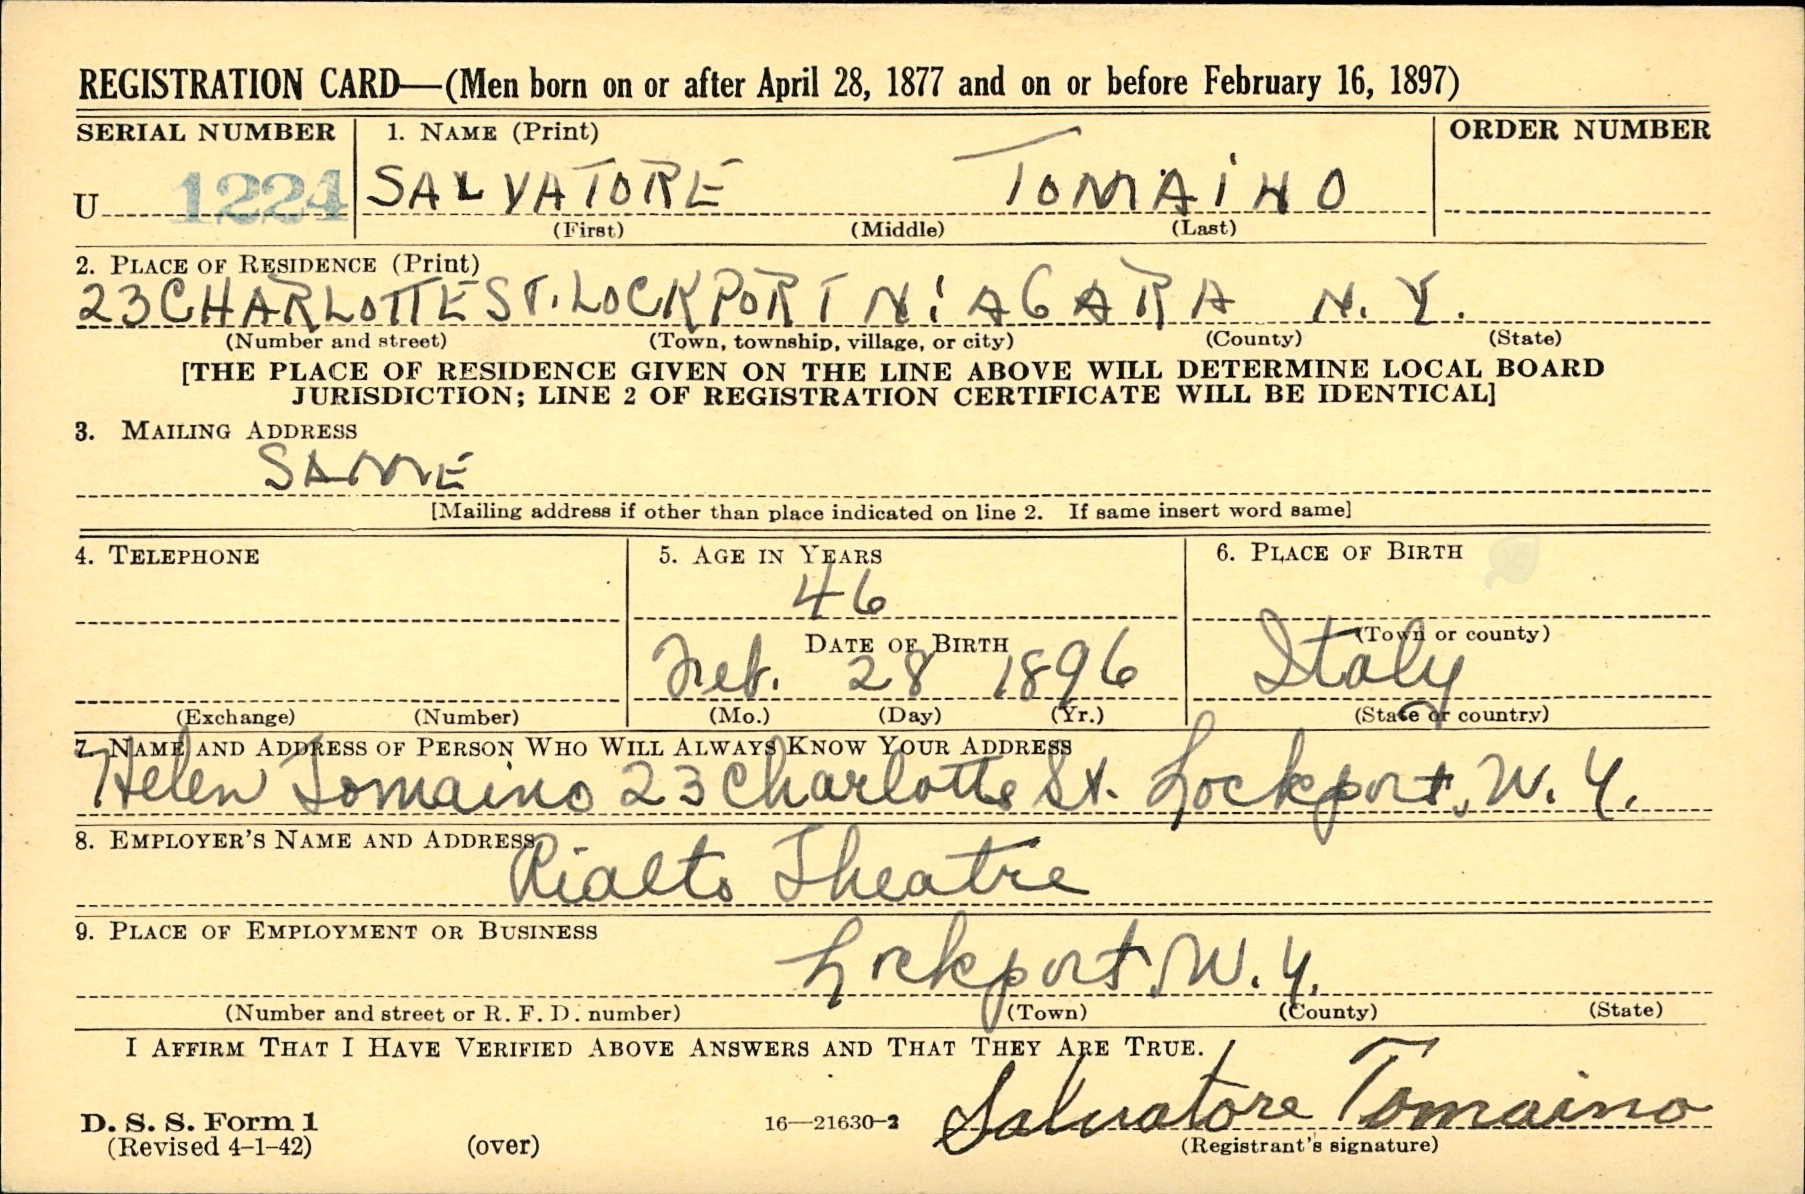 REGISTRATION CARD—(Men born on or after April 28, 1877 and on or before February 16, 1897)
SERIAL NUMBER 1. NAME (Print) ORDER NUMBER
U 1224 SALVATORE TOMAINO
(First) (Middle) (Last)
2. PLACE OF RESIDENCE (Print)
23 CHARLOTTE ST. LOCKPORT NIAGARA N.Y.
(Number and street) (Town, township, village, or city) (County) (State)
[THE PLACE OF RESIDENCE GIVEN ON THE LINE ABOVE WILL DETERMINE LOCAL BOARD
JURISDICTION; LINE 2 OF REGISTRATION CERTIFICATE WILL BE IDENTICAL]
3. MAILING ADDRESS
SAME
[Mailing address if other than place indicated on line 2. If same insert word same]
4. TELEPHONE 5. AGE IN YEARS 6. PLACE OF BIRTH
46
DATE OF BIRTH (Town or county)
Feb. 28 1896 Italy
(Exchange) (Number) (Mo.) (Day) (Yr.) (State or country)
7. NAME AND ADDRESS OF PERSON WHO WILL ALWAYS KNOW YOUR ADDRESS
Helen Tomaino 23 Charlotte St. Lockport, N.Y.
8. EMPLOYER'S NAME AND ADDRESS
Rialto Theatre
9. PLACE OF EMPLOYMENT OR BUSINESS
Lockport, N.Y.
(Number and street or R. F. D. number) (Town) (County) (State)
I AFFIRM THAT I HAVE VERIFIED ABOVE ANSWERS AND THAT THEY ARE TRUE.
D. S. S. Form 1 16—21630-2 Salvatore Tomaino
(Revised 4-1-42) (over) (Registrant's signature)